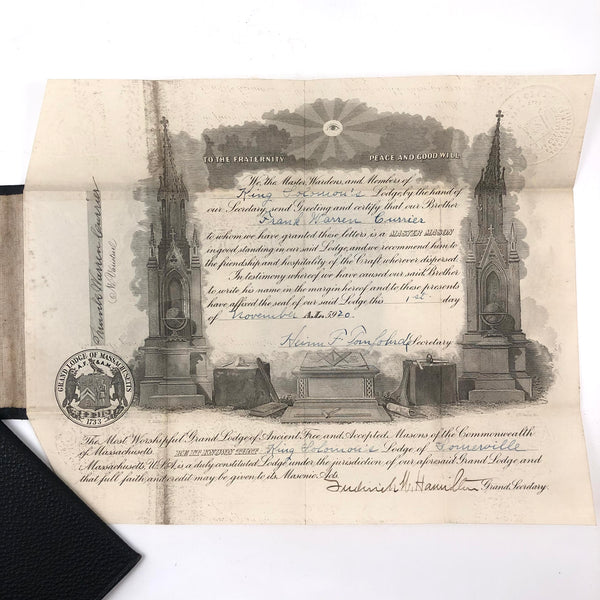 TO THE FRATERNITY PEACE AND GOOD WILL
We, the Master, Wardens, and Members of
King Solomon's Lodge, by the hand of
our Secretary, send Greeting and certify that our Brother
Frank Warren Currier
to whom we have granted these letters, is a MASTER MASON
in good standing in our said Lodge, and we recommend him to
the friendship and hospitality of the Craft wherever dispersed.
In testimony whereof we have caused our said Brother
to write his name in the margin hereof and to these presents
have affixed the seal of our said Lodge this 1st day
of November A.L. 5920.
Secretary
Frank Warren Currier
Ne Varietur
GRAND LODGE OF MASSACHUSETTS
A.F. & A.M.
1733
The Most Worshipful Grand Lodge of Ancient Free and Accepted Masons of the Commonwealth
of Massachusetts. BE IT KNOWN THAT King Solomon's Lodge of Somerville
Massachusetts, U.S.A. is a duly constituted Lodge under the jurisdiction of our aforesaid Grand Lodge and
that full faith and credit may be given to its Masonic Acts.
Frederick W. Hamilton Grand Secretary.